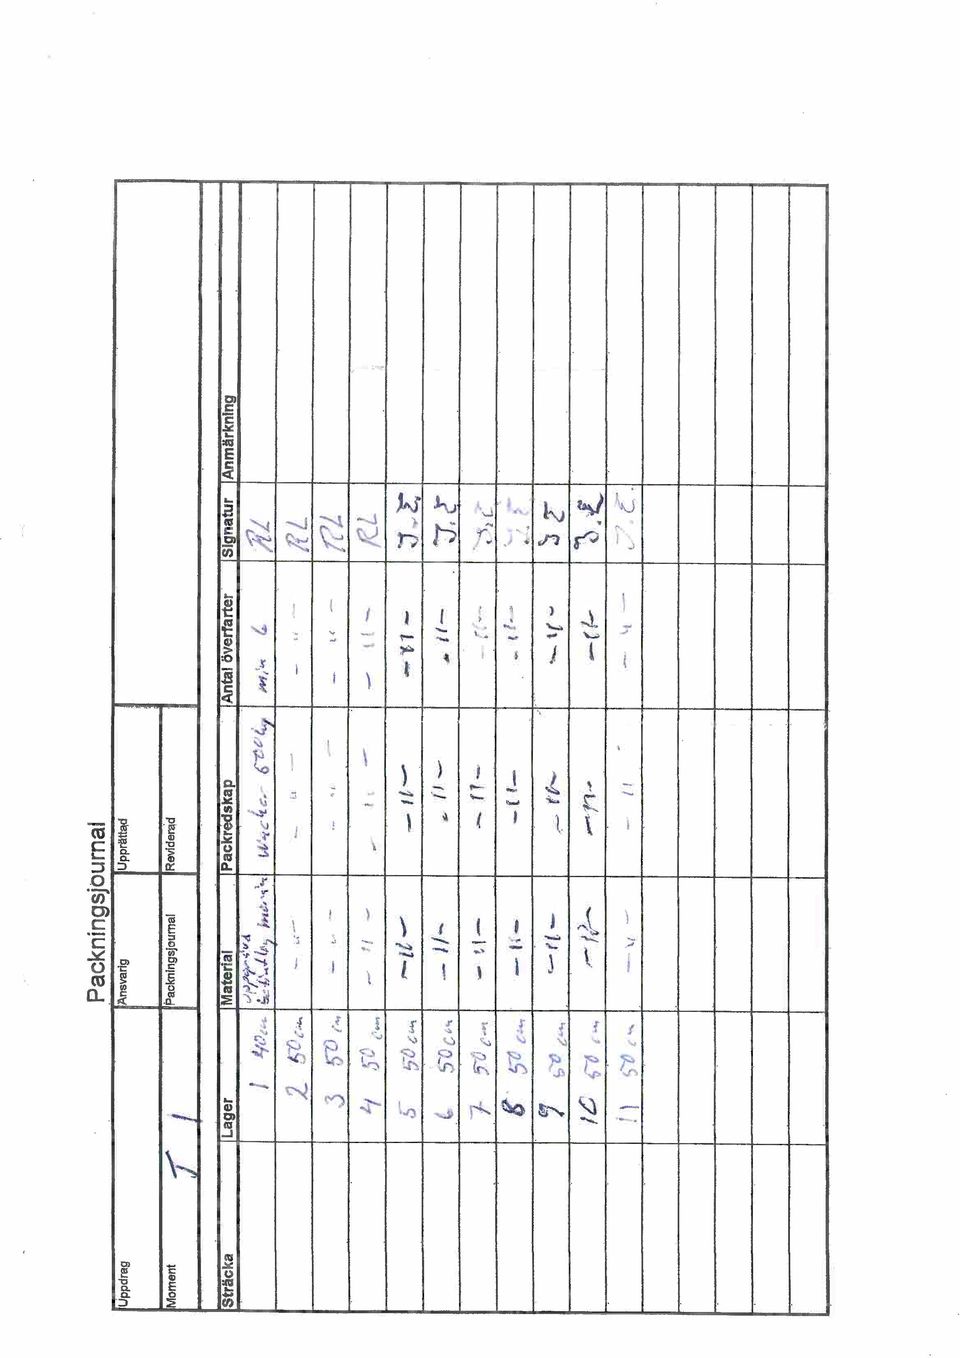 Packningsjournal
Uppdrag Ansvarig Upprättad
Moment Packningsjournal Reviderad
T 1
Sträcka Lager Material Packredskap Antal överfarter Signatur Anmärkning
1 40cm uppgrävd befintlig morän Wacker 600kg min 6 RL
2 50cm -"- -"- -"- RL
3 50cm -"- -"- -"- RL
4 50cm -"- -"- -"- RL
5 50cm -"- -"- -"- J.E.
6 50cm -"- -"- -"- J.E
7 50cm -"- -"- -"- J.E
8 50cm -"- -"- -"- J.E.
9 50cm -"- -"- -"- J E
10 50cm -"- -"- -"- J.E
11 50cm -"- -"- -"- J.E.